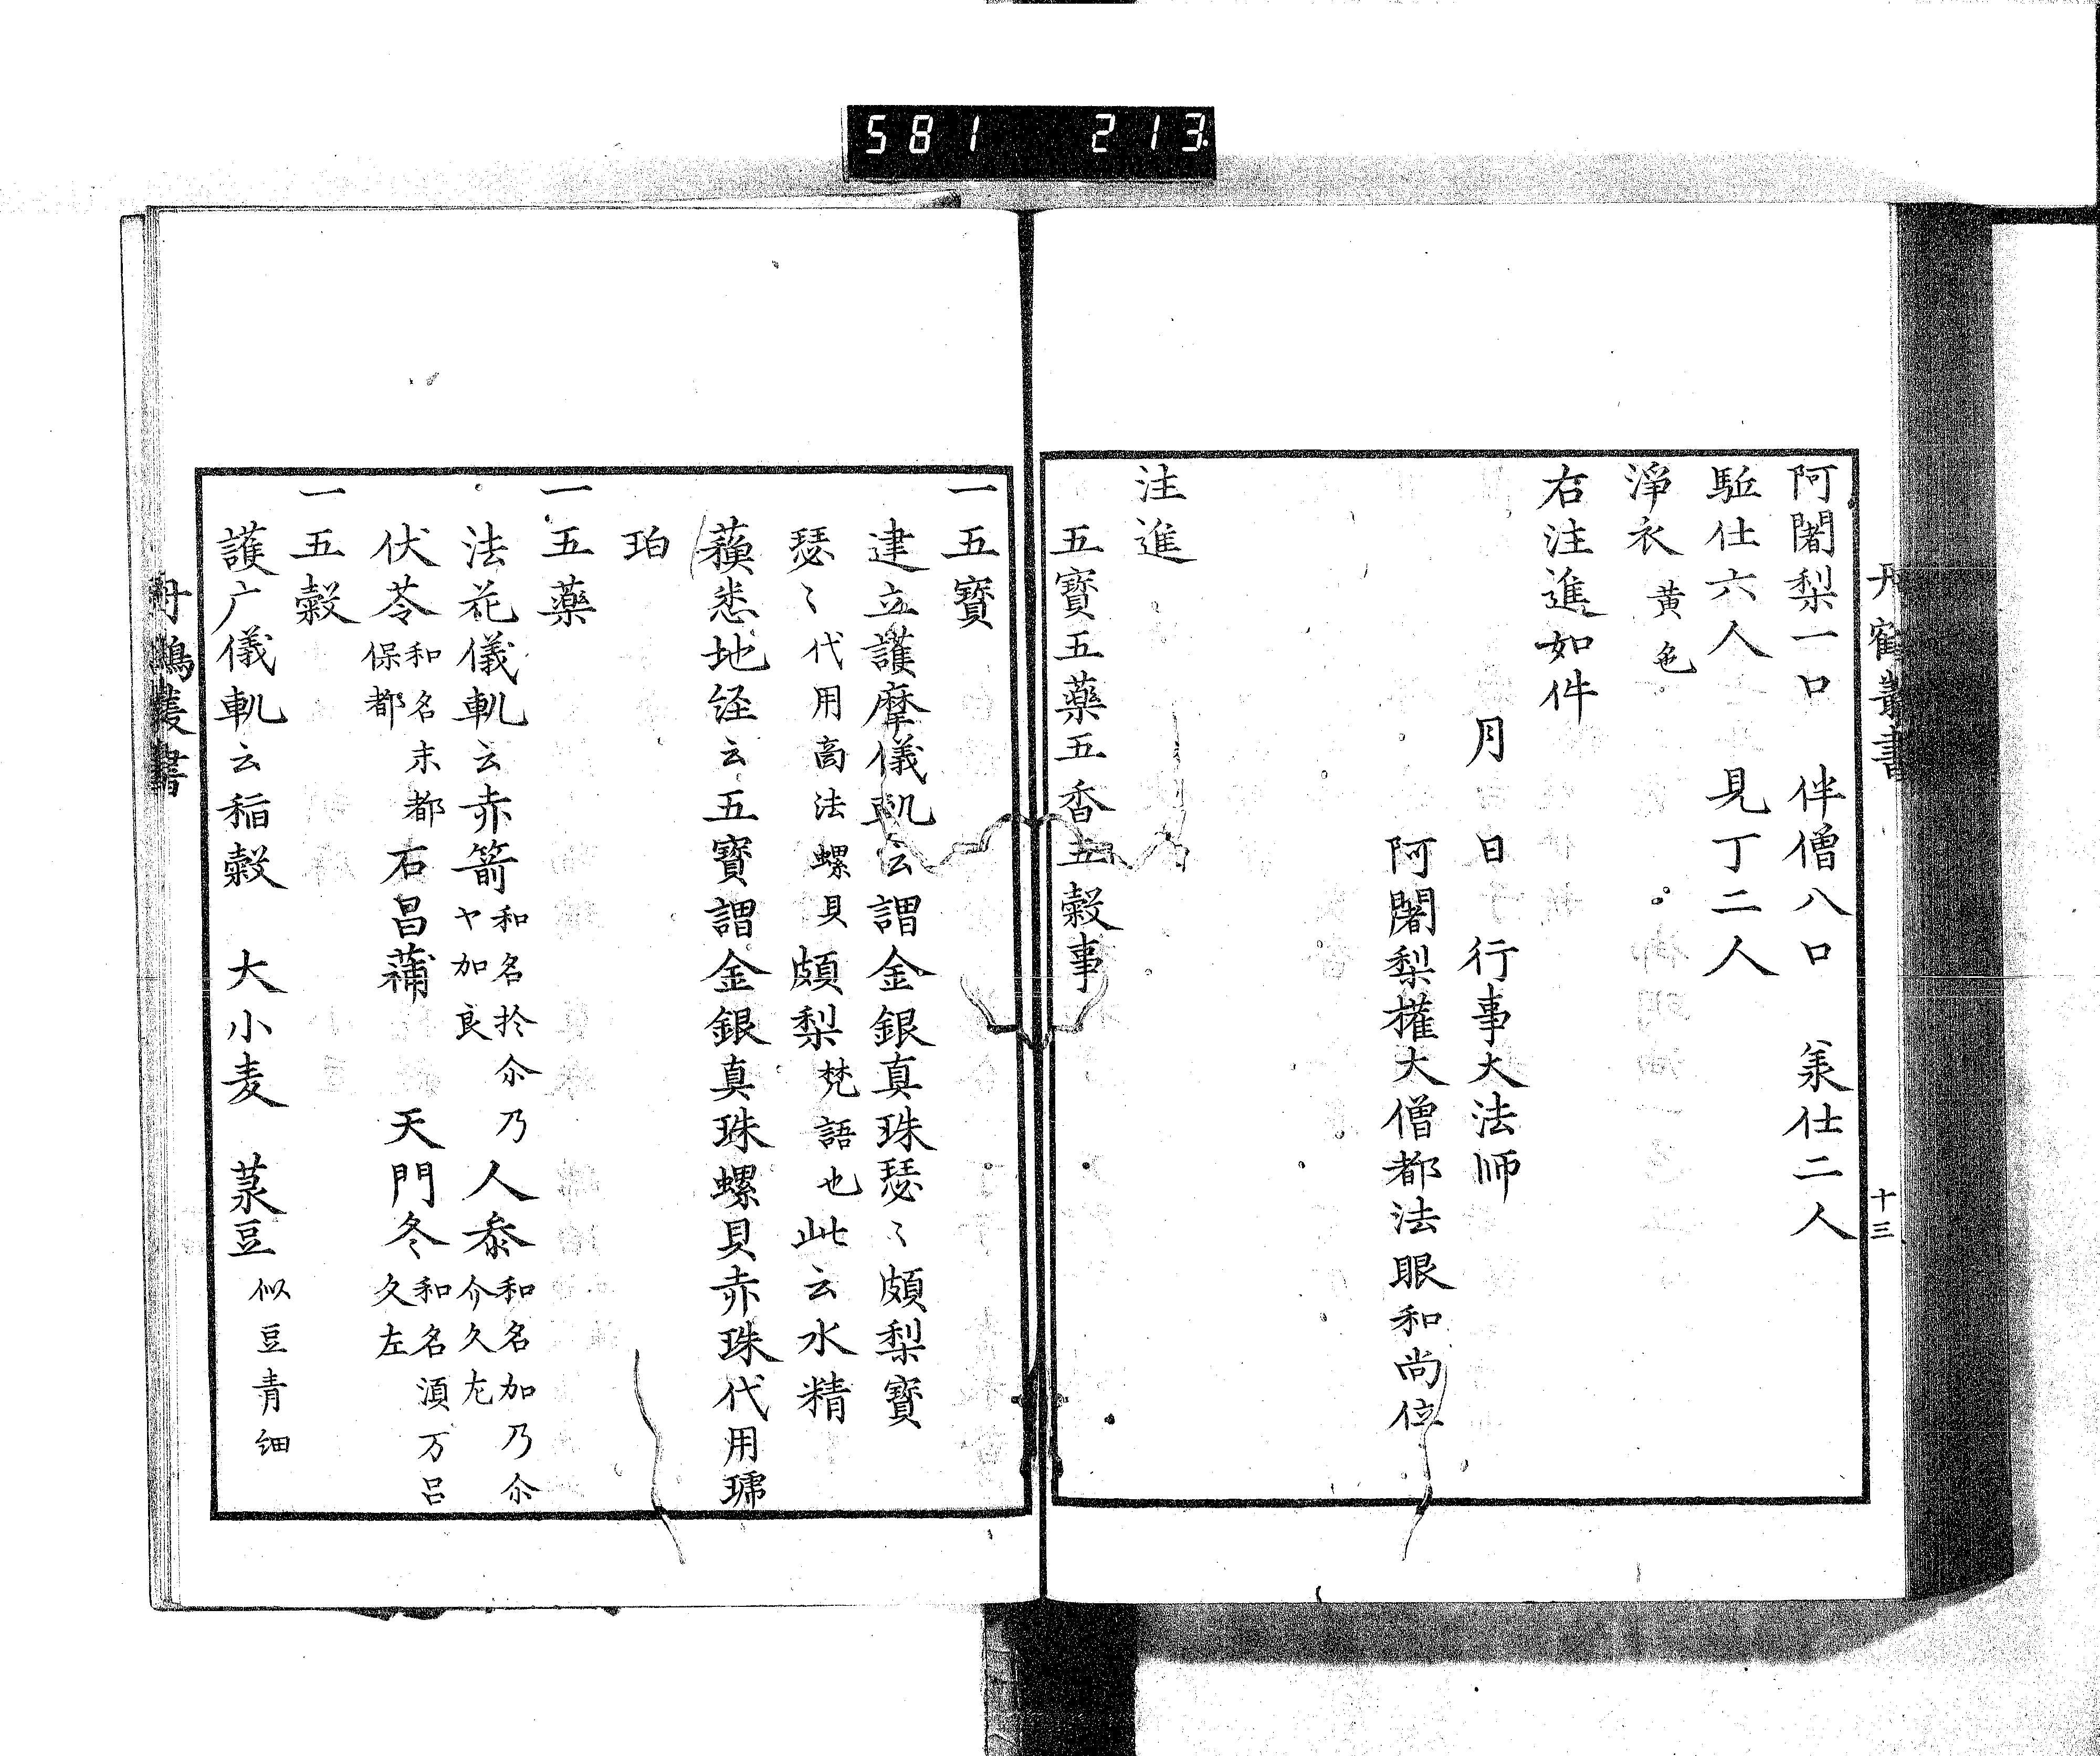 581 213
丹鶴叢書
十三
阿闍梨一口 伴僧八口 羕仕二人
駈仕六人 見丁二人
淨衣 黄色
右注進如件
月 日 行事大法师
阿闍梨權大僧都法眼和尚位
注進
五寶五薬五香五穀事
一五寶
建立護摩儀軌云謂金銀真珠瑟〻頗梨寶
瑟〻代用商法螺貝 頗梨梵語也此云水精
蘓悉地経云五寶謂金銀真珠螺貝赤珠代用琥
珀
一五藥
法花儀軌云赤箭 和名扵尒乃ヤ加良 人叅 和名加乃尒介久尤
伏苓 和名末都保都 石昌蒲 天門冬 和名湏万呂久左
一五穀
護广儀軌云稲穀 大小麦 菉豆 似豆青细
丹鶴叢書